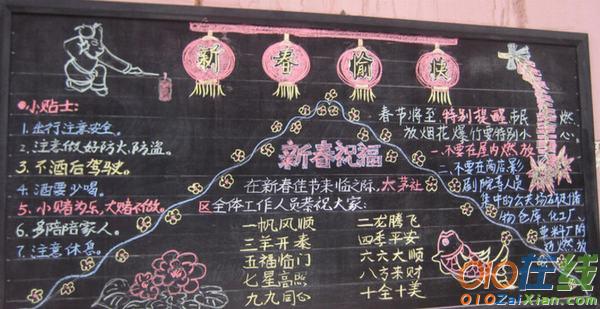 新春愉快
小贴士:
1.出行注意安全。
2.注意做好防火、防盗。
3.不酒后驾驶。
4.酒要少喝。
5.小赌为乐,大赌不做。
6.多陪陪家人。
7.注意休息。
新春祝福
在新春佳节来临之际,太茅社
区全体工作人员恭祝大家:
一帆风顺 二龙腾飞
三羊开泰 四季平安
五福临门 六六大顺
七星高照 八方来财
九九同心 十全十美
春节将至 特别提醒市民 燃
放烟花爆竹要特别小心。
一.不要在屋内燃放
二.不要在商店、影
剧院等人员
集中的公共场所及
物仓库、化工厂、
燃放
010在线
010ZaiXian.com